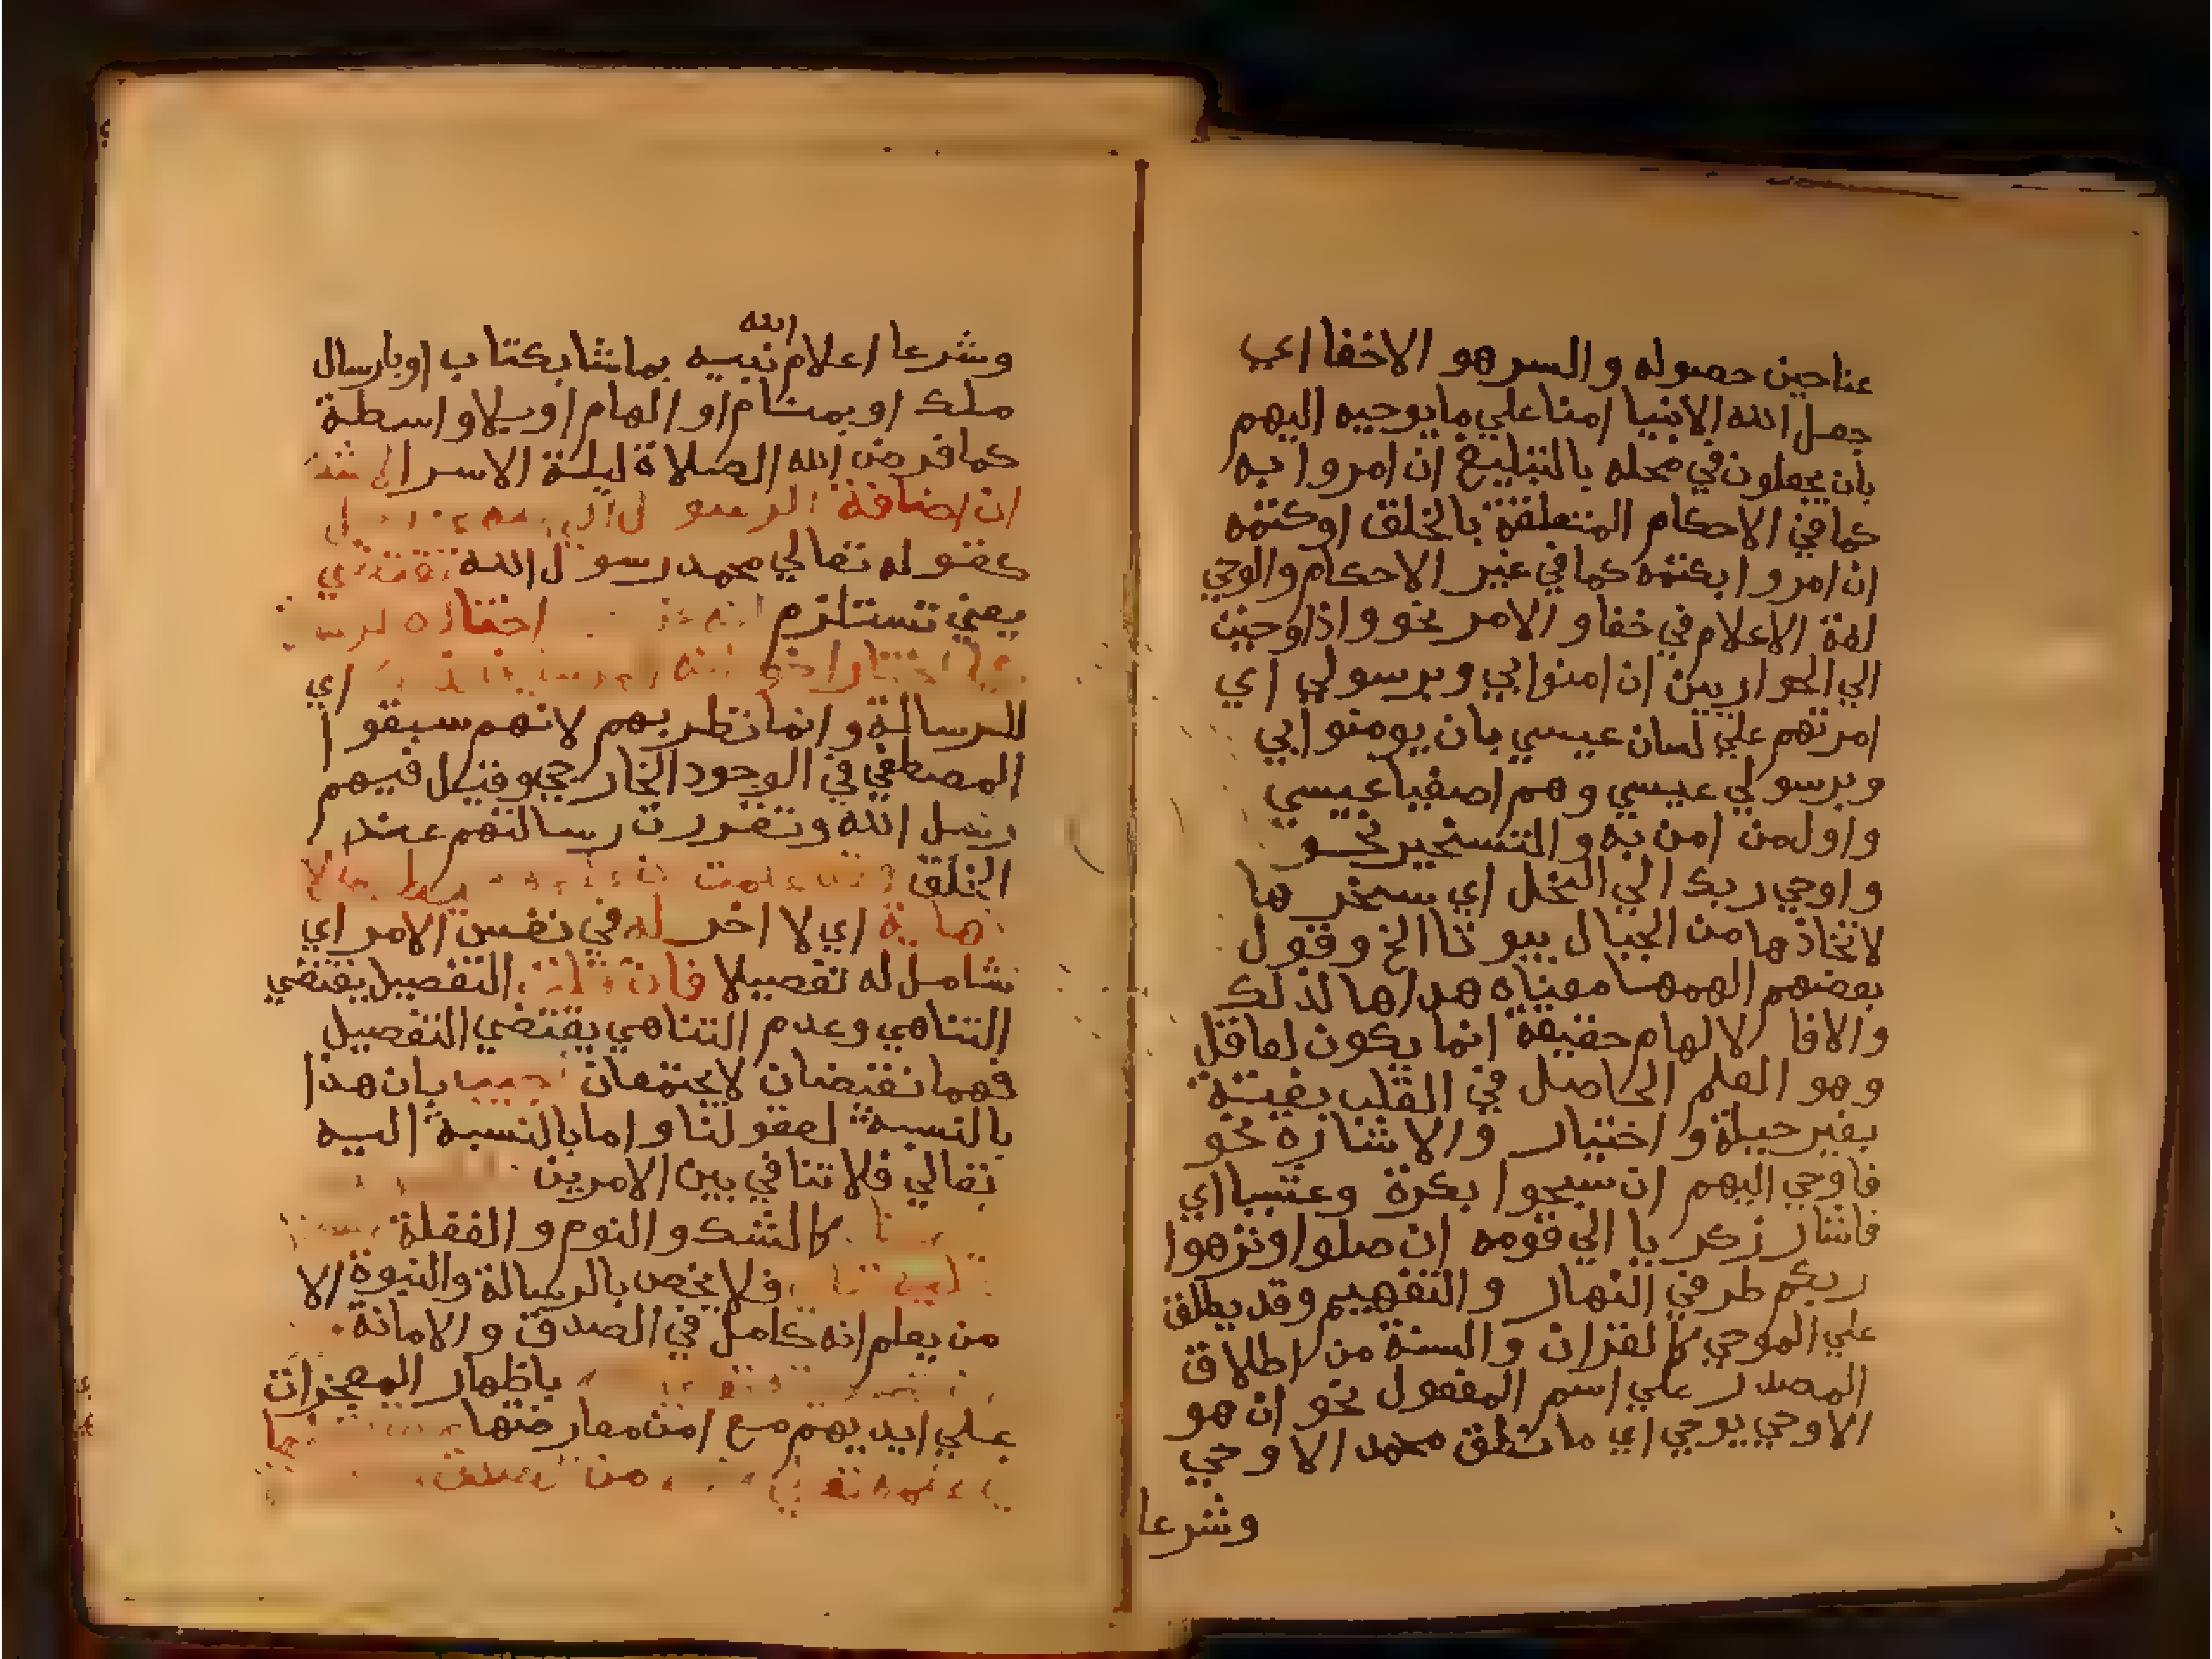 عنا حين حصوله والسر هو الاخفا اي
جعل الله الانبيا امنا علي ما يوحيه اليهم
بان يجعلون في محله بالتبليغ ان امروا به
كما في الاحكام المتعلقة بالخلق او كتمه
ان امروا بكتمه كما في غير الاحكام والوحي
لغة الاعلام في خفا و الامر نحو واذ اوحيت
الي الحواريين ان امنوا بي وبرسولي اي
امرتهم علي لسان عيسي بان يومنوا بي
وبرسولي عيسي وهم اصفيا عيسي
واول من امن به والتسخير نحو
واوحي ربك الي النحل اي سخرها
لاتخاذها من الجبال بيوتا الخ وقول
بعضهم الهمها معناه هداها لذلك
والا فالالهام حقيقة انما يكون لعاقل
وهو العلم الحاصل في القلب بغتة
بغير حيلة واختيار والاشارة نحو
فاوحي اليهم ان سبحوا بكرة وعشيا اي
فاشار زكريا الي قومه ان صلوا ونزهوا
ربكم طرفي النهار والتفهيم وقد يطلق
علي الموحي كالقران والسنة من اطلاق
المصدر علي اسم المفعول نحو ان هو
الا وحي يوحي اي ما نطق محمد الا وحي
وشرعا
وشرعا اعلام الله نبيه بما شا بكتاب او بارسال
ملك او بمنام او الهام او بلا واسطة
كما فرض الله الصلاة ليلة الاسرا
ان اضافة الرسول
كقوله تعالي محمد رسول الله تقتضي
يعني تستلزم اختاره
اي
للرسالة وانما نظر بهم لانهم سبقوا
المصطفي في الوجود الخارجي وقيل فيهم
رسل الله وتقررت رسالتهم عند
الخلق
اي لا اخر له في نفس الامر اي
شامل له تفصيلا فان قلت التفصيل يقتضي
التناهي وعدم التناهي يقتضي التفصيل
فهما نقيضان لا يجتمعان اجيب بان هذا
بالنسبة لعقولنا واما بالنسبة اليه
تعالي فلا تنافي بين الامرين
كالشك والنوم والغفلة
فلا يخص بالرسالة والنبوة الا
من يعلم انه كامل في الصدق والامانة
باظهار المعجزات
علي ايديهم مع امن معارضتها
من